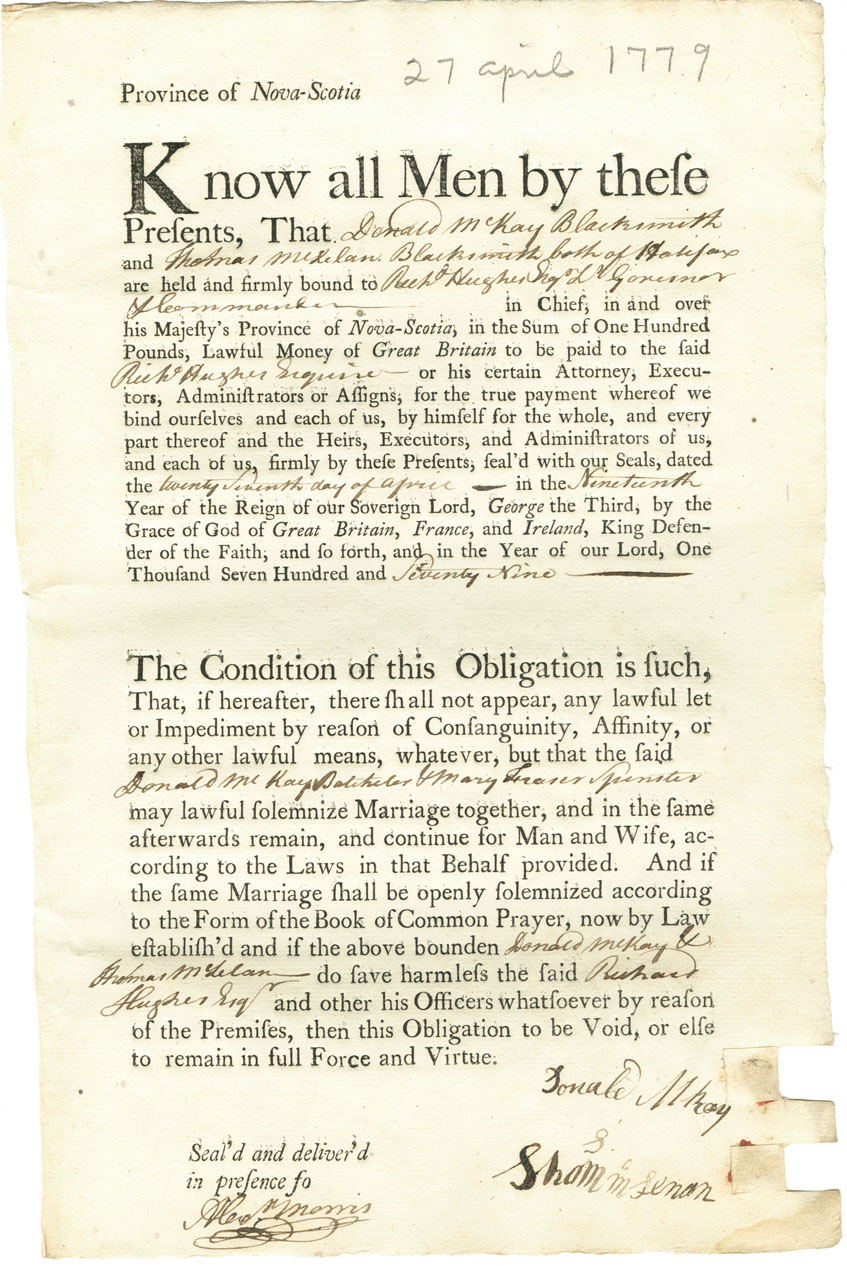 27 april 1779
Province of Nova-Scotia
Know all Men by theſe
Preſents, That Donald McKay Blacksmith
and Thomas McLelan Blacksmith both of Halifax
are held and firmly bound to Richd Hughes Esqr Lt Governor
& Commander in Chief, in and over
his Majeſty's Province of Nova-Scotia, in the Sum of One Hundred
Pounds, Lawful Money of Great Britain to be paid to the ſaid
Richd Hughes Esquire or his certain Attorney, Execu-
tors, Adminiſtrators or Aſſigns, for the true payment whereof we
bind ourſelves and each of us, by himſelf for the whole, and every
part thereof and the Heirs, Executors, and Adminiſtrators of us,
and each of us, firmly by theſe Preſents, ſeal'd with our Seals, dated
the twenty Seventh day of april — in the Nineteenth
Year of the Reign of our Soverign Lord, George the Third, by the
Grace of God of Great Britain, France, and Ireland, King Defen-
der of the Faith, and ſo forth, and in the Year of our Lord, One
Thouſand Seven Hundred and Seventy Nine —
The Condition of this Obligation is ſuch,
That, if hereafter, there ſhall not appear, any lawful let
or Impediment by reaſon of Conſanguinity, Affinity, or
any other lawful means, whatever, but that the ſaid
Donald McKay Batcheler & Mary Fraser Spinster
may lawful ſolemnize Marriage together, and in the ſame
afterwards remain, and continue for Man and Wife, ac-
cording to the Laws in that Behalf provided. And if
the ſame Marriage ſhall be openly ſolemnized according
to the Form of the Book of Common Prayer, now by Law
eſtabliſh'd and if the above bounden Donald McKay &
Thomas McLelan — do ſave harmleſs the ſaid Richard
Hughes Esqr and other his Officers whatſoever by reaſon
of the Premiſes, then this Obligation to be Void, or elſe
to remain in full Force and Virtue.
Donald MKay
Seal'd and deliver'd
in preſence fo
Morris